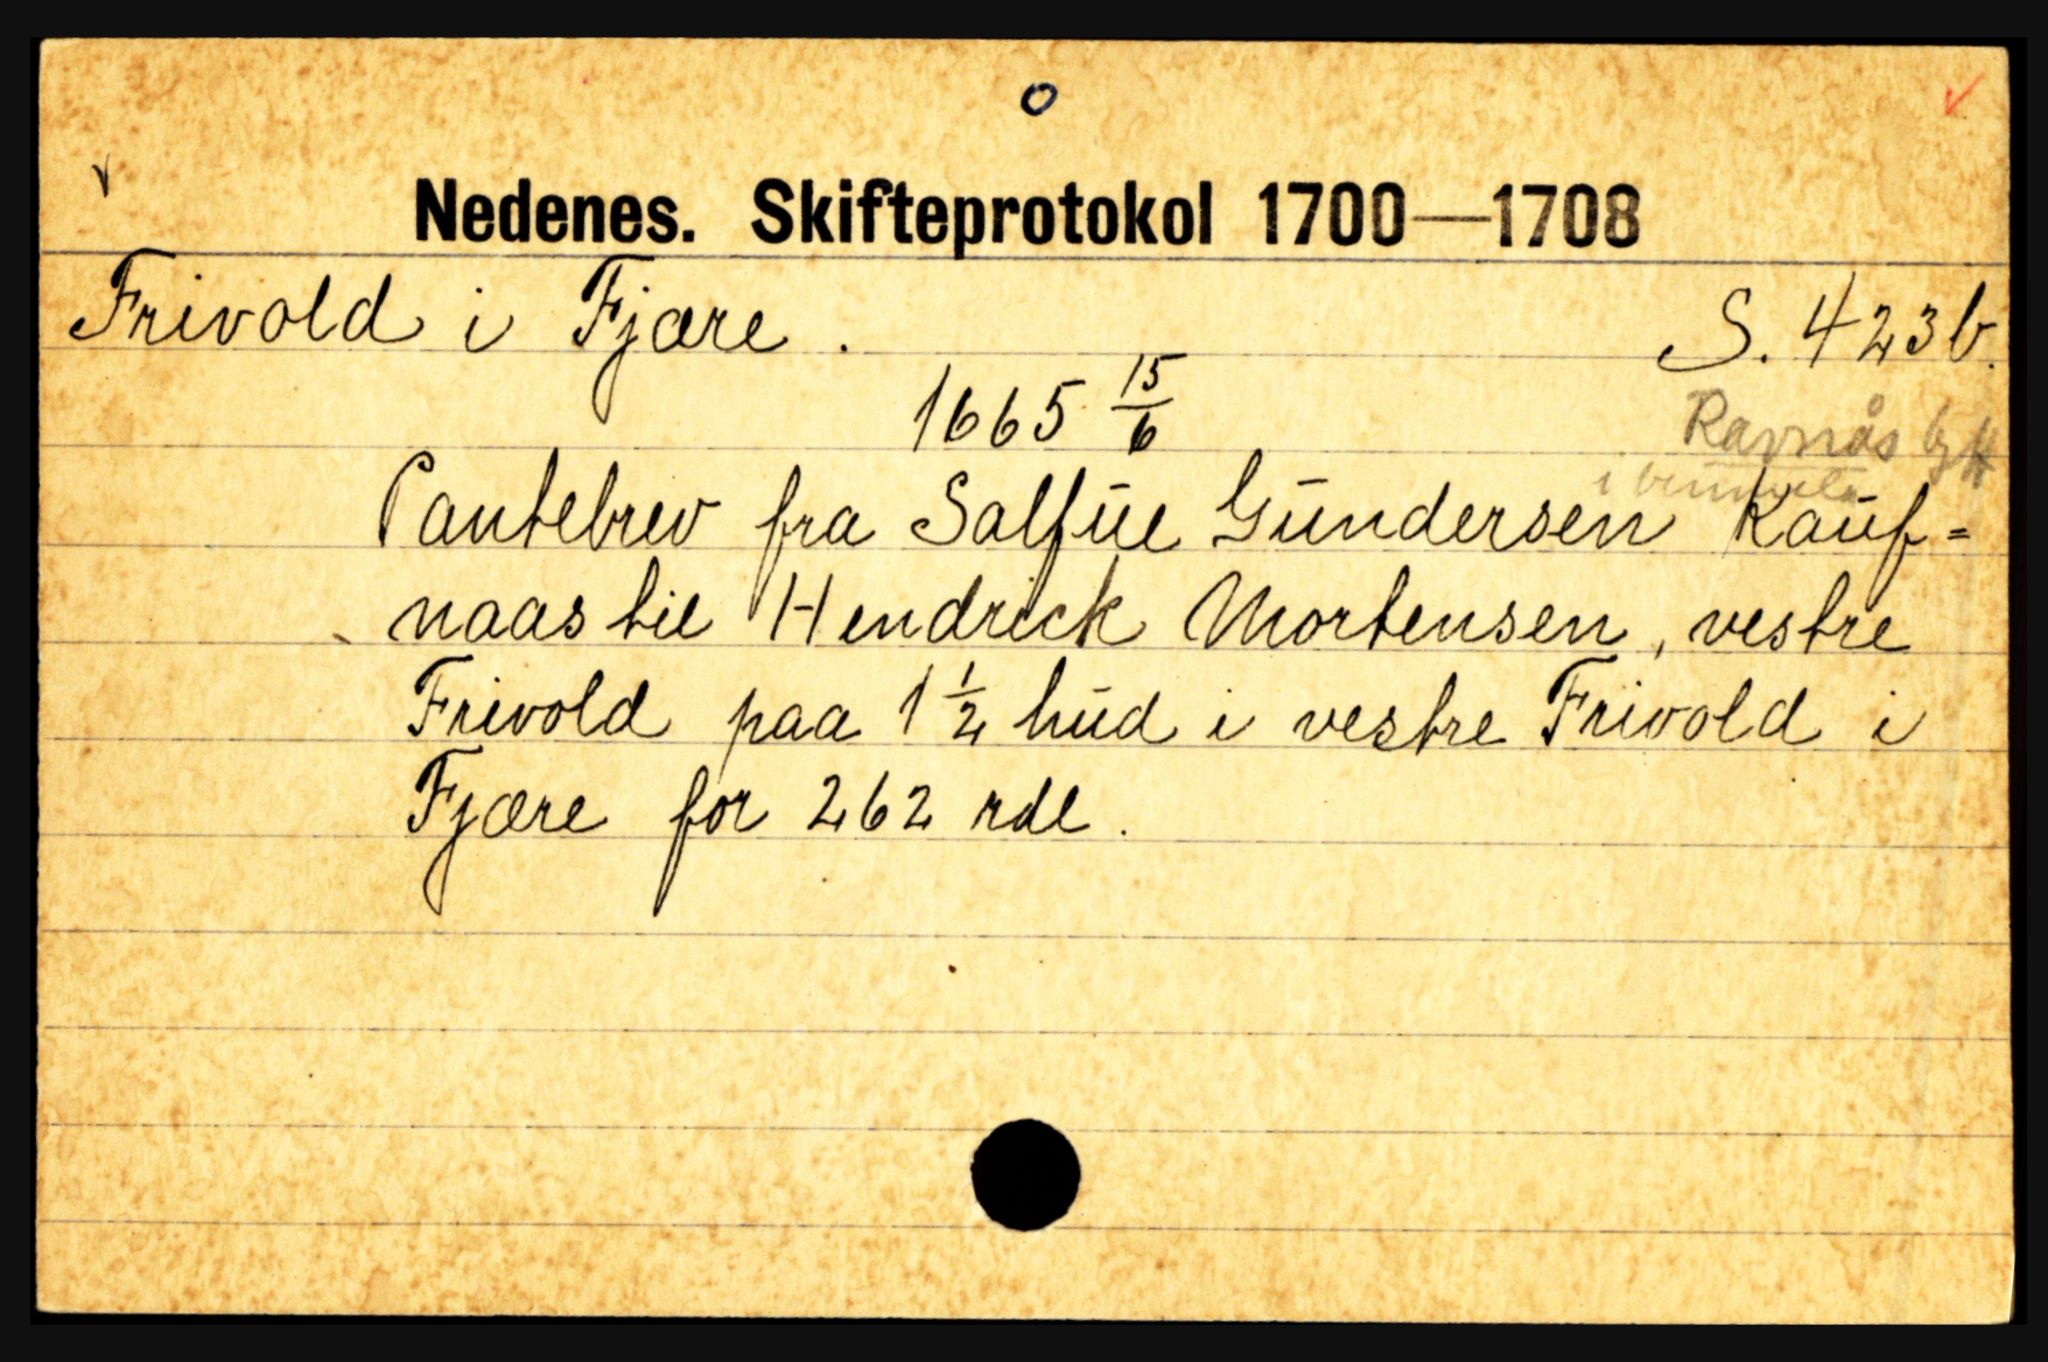 Nedenes. Skifteprotokol 1700—1708
Frivold i Fjære. S. 423b.
1665 15/6
Ravnås
i
Pantebrev fra Salfue Gundersen Kauf=
naas til Hendrick Mortensen, vestre
Frivold paa 1 1/2 hud i vestre Frivold i
Fjære for 262 rdl.